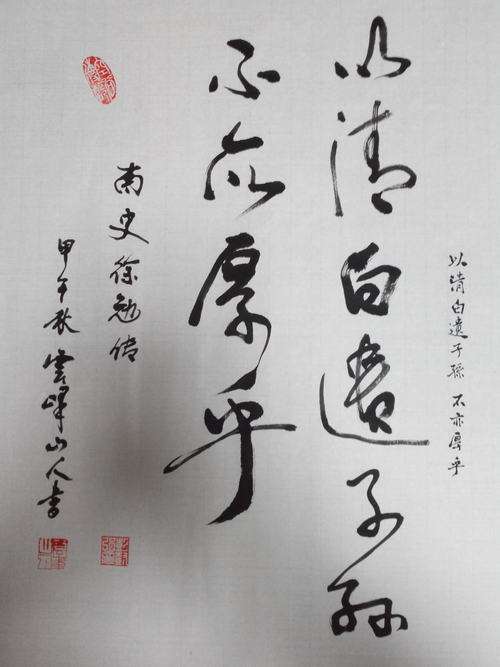 以清白遗子孙不亦厚乎
以清白遗子孙
不亦厚乎
南史徐勉传
甲午秋 云峰山人书